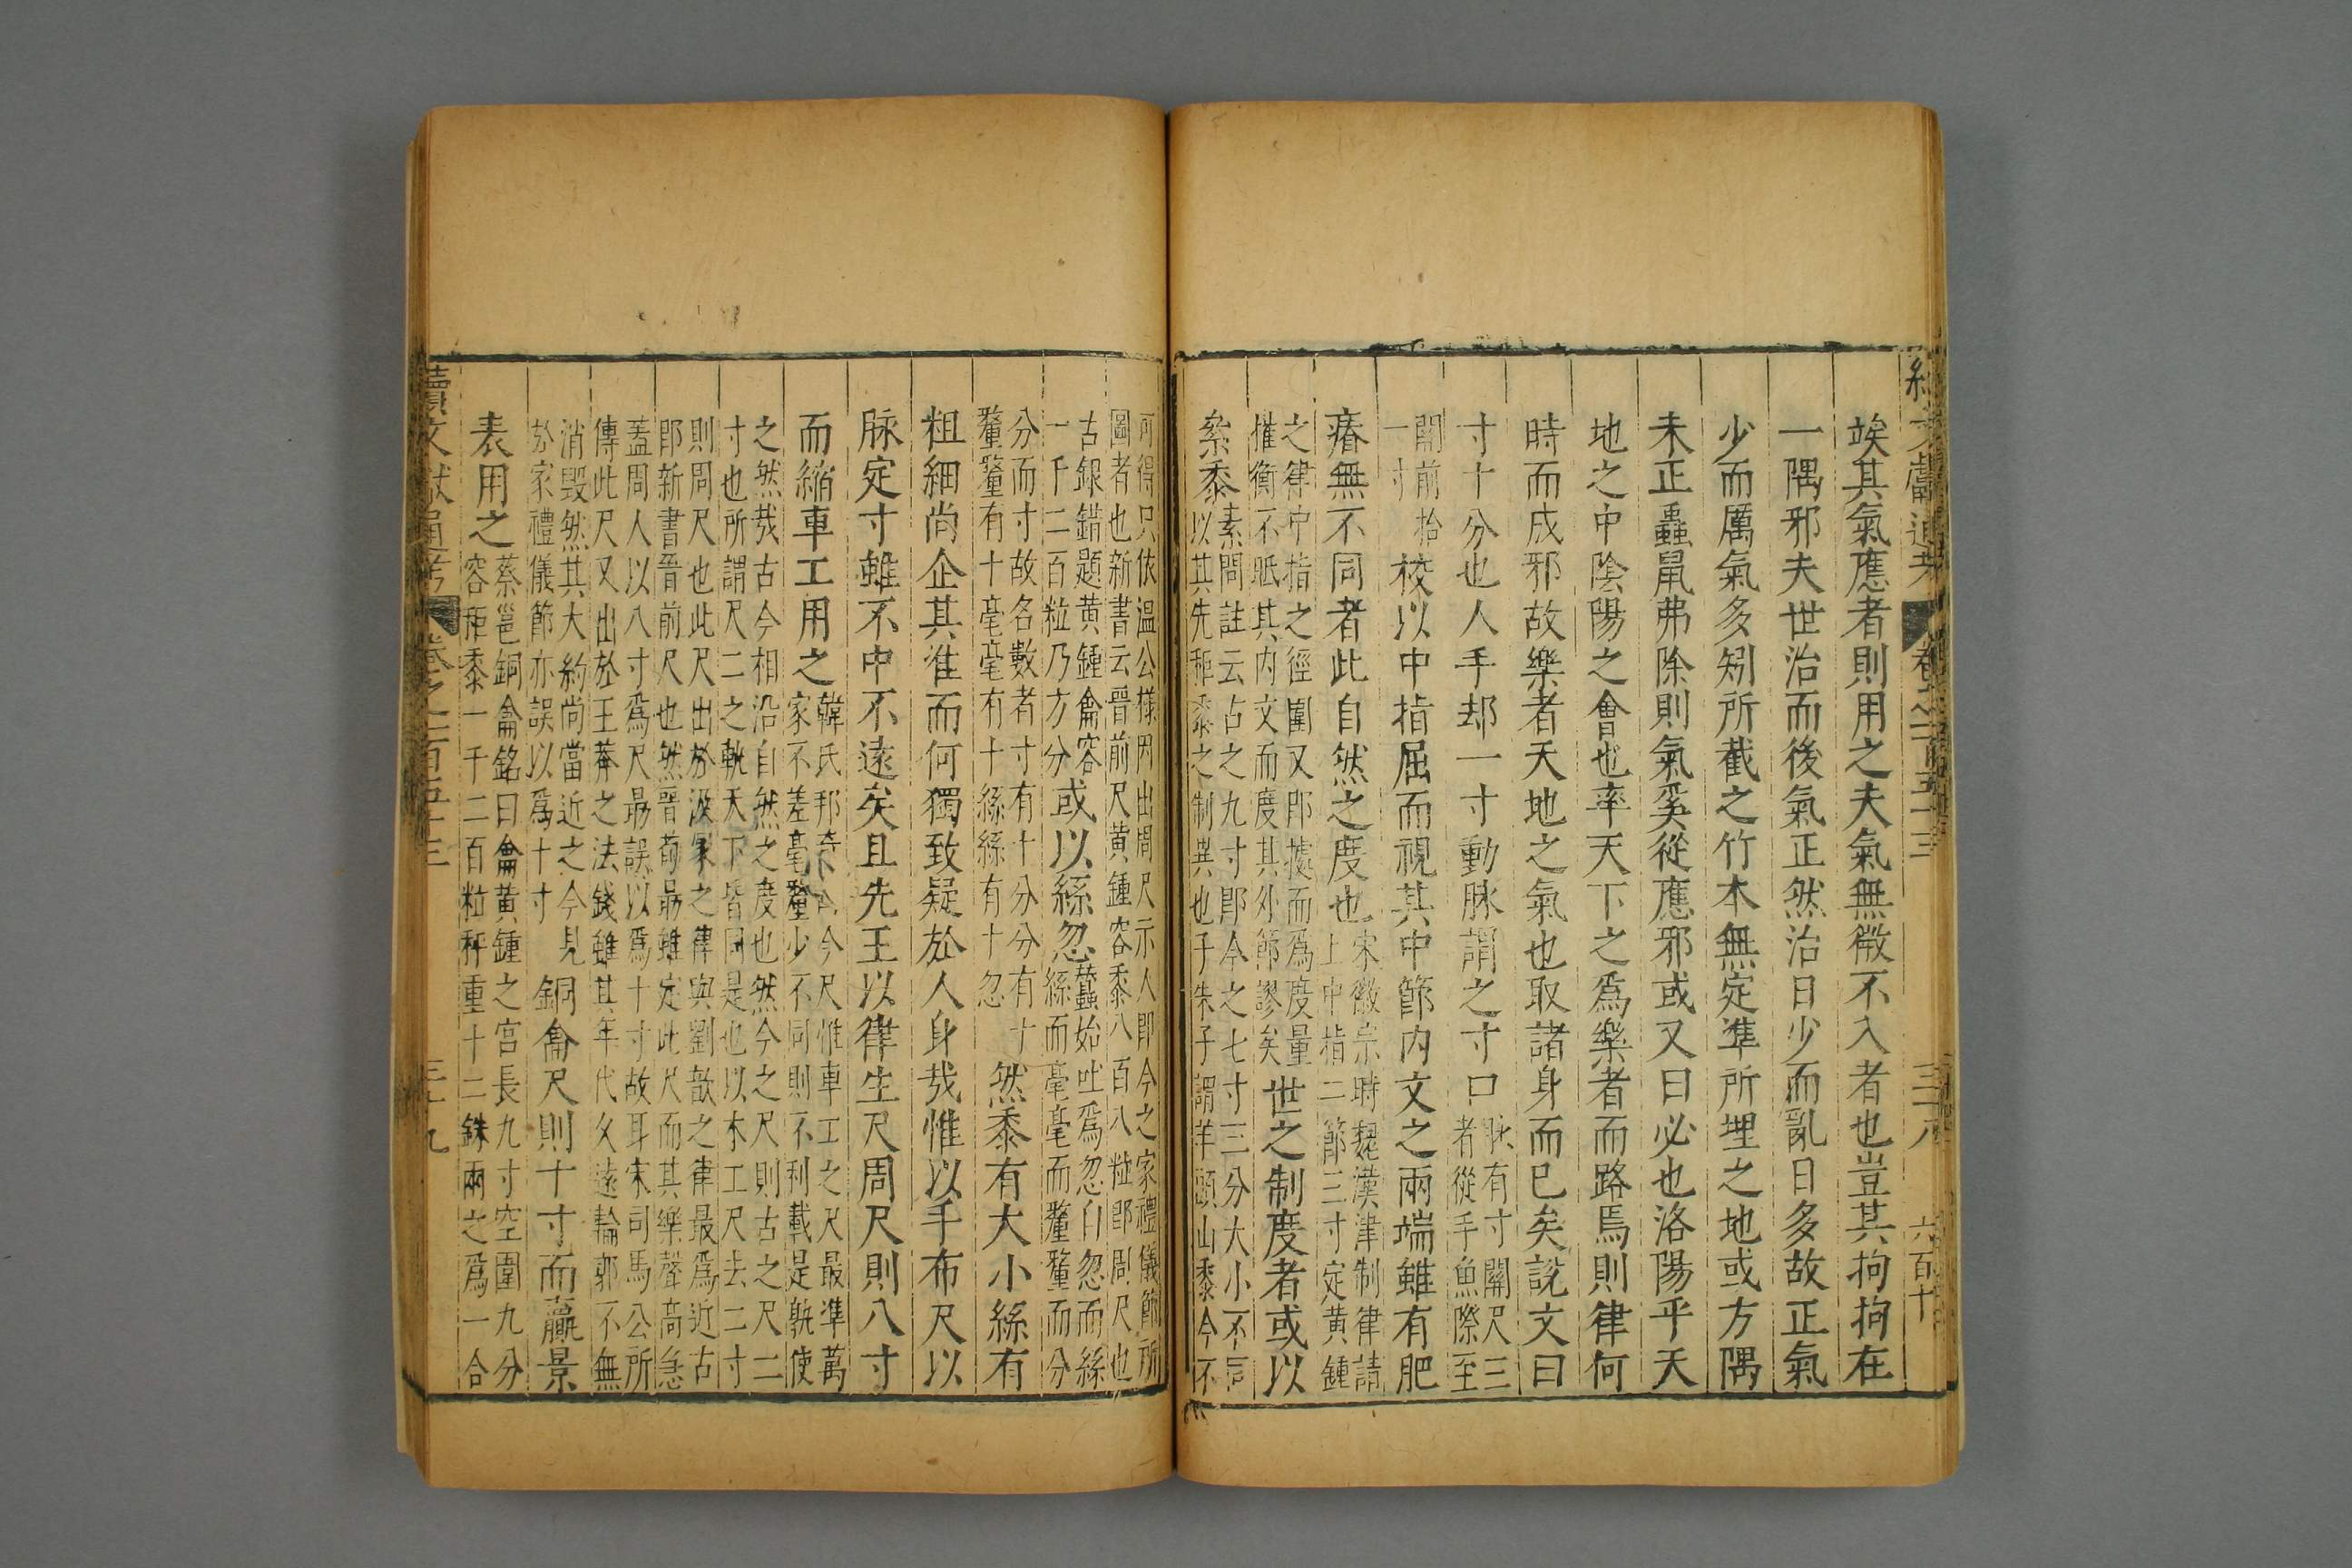 竢其氣應者則用之夫氣無微不入者也豈其拘拘在
一隅邪夫世治而後氣正然治日少而亂日多故正氣
少而厲氣多矧所截之竹本無定準所埋之地或方隅
未正蟲鼠弗除則氣奚從應邪或又曰必也洛陽乎天
地之中陰陽之會也率天下之爲樂者而路焉則律何
時而成邪故樂者天地之氣也取諸身而已矣說文曰
寸十分也人手却一寸動脉謂之寸口脉有寸關尺三
者從手魚際至
關前拾
一寸校以中指屈而視其中節内文之兩端雖有肥
瘠無不同者此自然之度也宋徽宗時魏漢津制律請
上中指二節三寸定黃鍾
之律中指之徑圍又即據而爲度量
權衡不眡其内文而度其外節謬矣世之制度者或以
絫黍素問註云古之九寸即今之七寸三分大小不同
以其先秬黍之制異也于朱子謂羊頭山黍今不
可得只依溫公樣因出周尺示人即今之家禮儀節所
圖者也新書云晉前尺黃鍾容黍八百八粒即周尺也
古銀錯題黃鍾龠容
一千二百粒乃方分或以絲忽蠶始吐爲忽自忽而絲
絲而毫毫而釐釐而分
分而寸故名數者寸有十分分有十
釐釐有十毫毫有十絲絲有十忽然黍有大小絲有
粗細尚企其准而何獨致疑於人身哉惟以手布尺以
脉定寸雖不中不遠矣且先王以律生尺周尺則八寸
而縮車工用之韓氏邦奇曰今尺惟車工之尺最準萬
家不差毫釐少不同則不利載是孰使
之然哉古今相沿自然之度也然今之尺則古之尺二
寸也所謂尺二之軌天下皆同是也以木工尺去二寸
則周尺也此尺出於汲冢之律與劉歆之律最爲近古
即新書晉前尺也然晉荀最雖定此尺而其樂聲高急
蓋周人以八寸爲尺最誤以爲十寸故耳宋司馬公所
傳此尺又出於王莽之法錢雖其年代久遠輪郭不無
消毀然其大約尚當近之今見
於家禮儀節亦誤以爲十寸銅龠尺則十寸而贏景
表用之蔡邕銅龠銘曰龠黃鍾之宮長九寸空圍九分
容秬黍一千二百粒秤重十二銖兩之爲一合
續文獻通考 卷之一百五十三 三十九